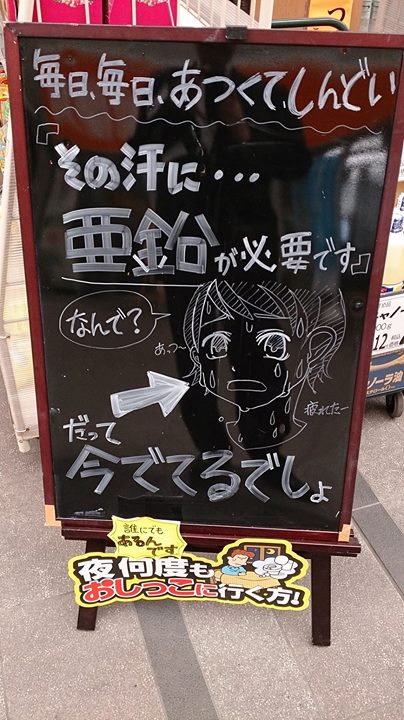 毎日、毎日、あつくて、しんどい
『その汗に・・・
亜鉛が必要です』
なんで?
あっつ〜
疲れたー
だって
今でてるでしょ
誰にでも
あるんです
夜何度も
おしっこに行く方!